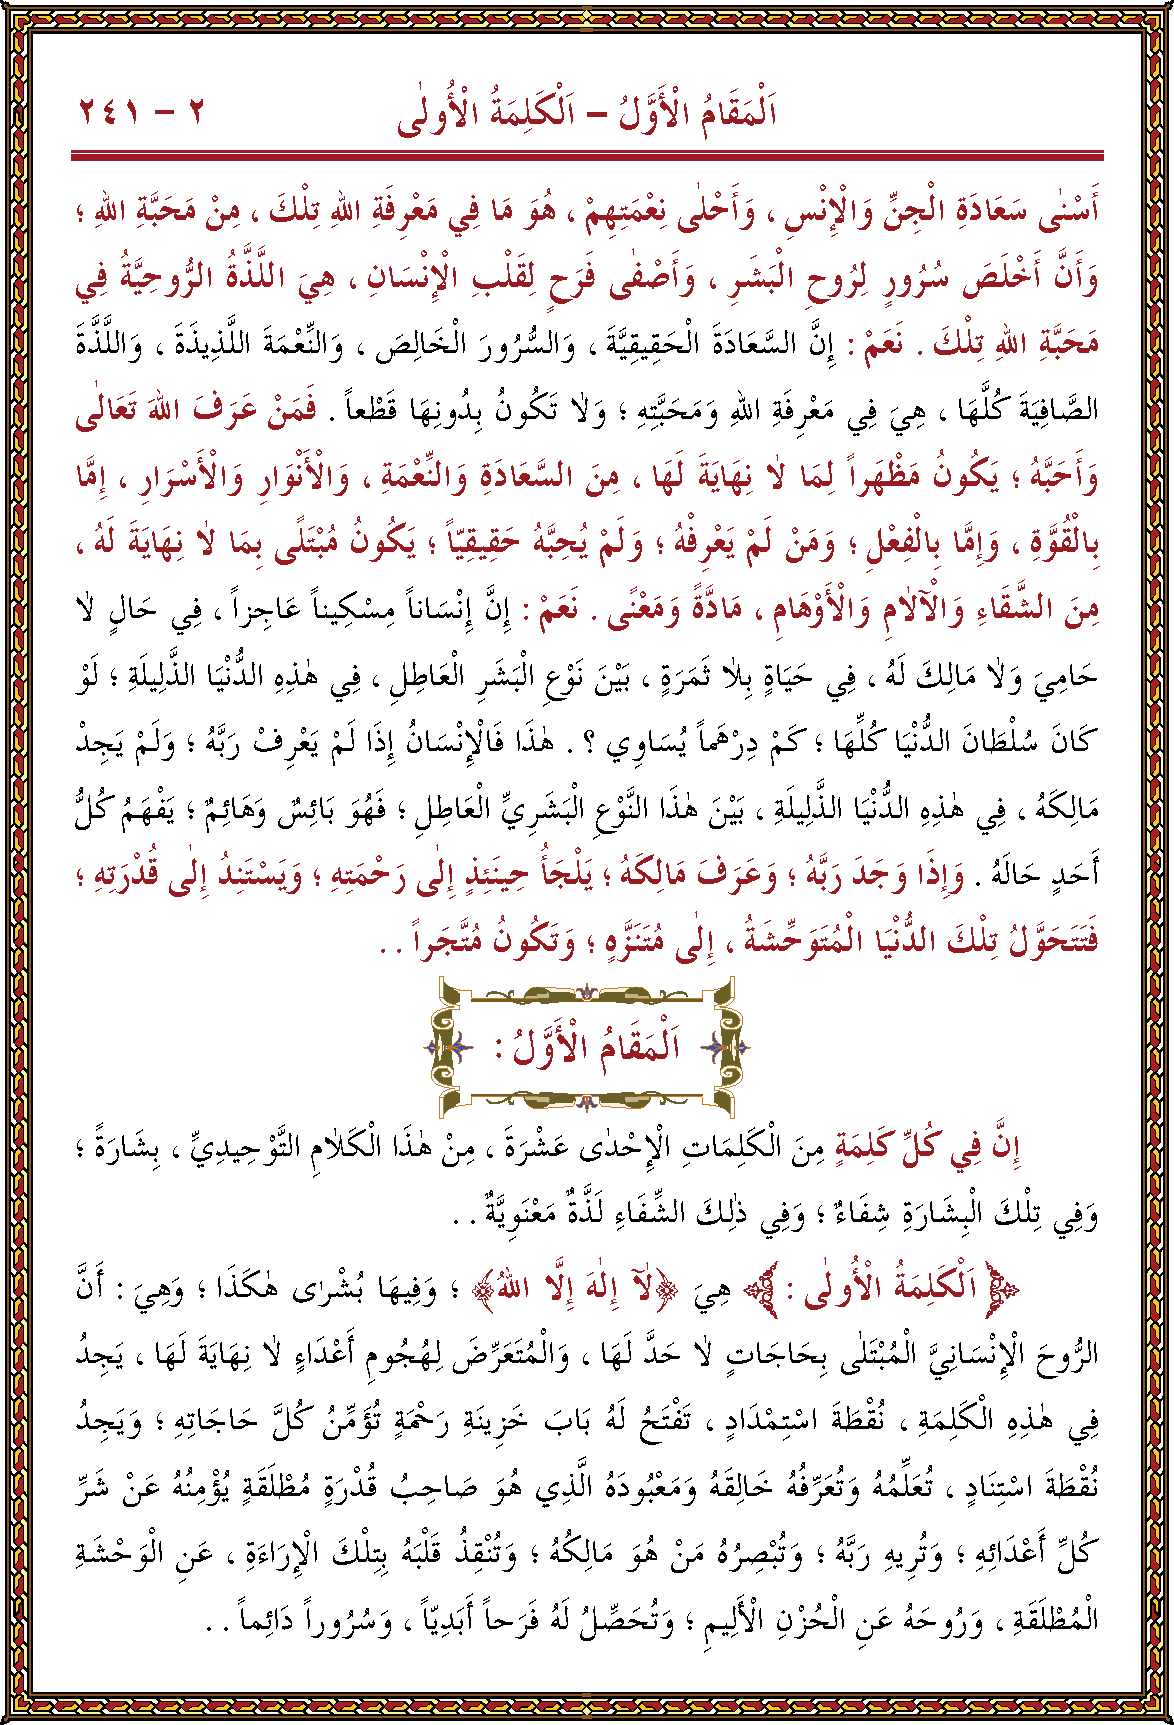 اَلْمَقَامُ الْأَوَّلُ – اَلْكَلِمَةُ الْأُولٰى ٢ – ٢٤١
أَسْنٰى سَعَادَةِ الْجِنِّ وَالْإِنْسِ ، وَأَحْلٰى نِعْمَتِهِمْ ، هُوَ مَا فِي مَعْرِفَةِ اللهِ تِلْكَ ، مِنْ مَحَبَّةِ اللهِ ؛
وَأَنَّ أَخْلَصَ سُرُورٍ لِرُوحِ الْبَشَرِ ، وَأَصْفٰى فَرَحٍ لِقَلْبِ الْإِنْسَانِ ، هِيَ اللَّذَّةُ الرُّوحِيَّةُ فِي
مَحَبَّةِ اللهِ تِلْكَ . نَعَمْ : إِنَّ السَّعَادَةَ الْحَقِيقِيَّةَ ، وَالسُّرُورَ الْخَالِصَ ، وَالنِّعْمَةَ اللَّذِيذَةَ ، وَاللَّذَّةَ
الصَّافِيَةَ كُلَّهَا ، هِيَ فِي مَعْرِفَةِ اللهِ وَمَحَبَّتِهِ ؛ وَلاٰ تَكُونُ بِدُونِهَا قَطْعاً . فَمَنْ عَرَفَ اللهَ تَعَالٰى
وَأَحَبَّهُ ؛ يَكُونُ مَظْهَراً لِمَا لاٰ نِهَايَةَ لَهَا ، مِنَ السَّعَادَةِ وَالنِّعْمَةِ ، وَالْأَنْوَارِ وَالْأَسْرَارِ ، إِمَّا
بِالْقُوَّةِ ، وَإِمَّا بِالْفِعْلِ ؛ وَمَنْ لَمْ يَعْرِفْهُ ؛ وَلَمْ يُحِبَّهُ حَقِيقِيّاً ؛ يَكُونُ مُبْتَلًى بِمَا لاٰ نِهَايَةَ لَهُ ،
مِنَ الشَّقَاءِ وَالْآلاٰمِ وَالْأَوْهَامِ ، مَادَّةً وَمَعْنًى . نَعَمْ : إِنَّ إِنْسَاناً مِسْكِيناً عَاجِزاً ، فِي حَالٍ لاٰ
حَامِيَ وَلاٰ مَالِكَ لَهُ ، فِي حَيَاةٍ بِلاٰ ثَمَرَةٍ ، بَيْنَ نَوْعِ الْبَشَرِ الْعَاطِلِ ، فِي هٰذِهِ الدُّنْيَا الذَّلِيلَةِ ؛ لَوْ
كَانَ سُلْطَانَ الدُّنْيَا كُلِّهَا ؛ كَمْ دِرْهَماً يُسَاوِي ؟ . هٰذَا فَالْإِنْسَانُ إِذَا لَمْ يَعْرِفْ رَبَّهُ ؛ وَلَمْ يَجِدْ
مَالِكَهُ ، فِي هٰذِهِ الدُّنْيَا الذَّلِيلَةِ ، بَيْنَ هٰذَا النَّوْعِ الْبَشَرِيِّ الْعَاطِلِ ؛ فَهُوَ بَائِسٌ وَهَائِمٌ ؛ يَفْهَمُ كُلُّ
أَحَدٍ حَالَهُ . وَإِذَا وَجَدَ رَبَّهُ ؛ وَعَرَفَ مَالِكَهُ ؛ يَلْجَأُ حِينَئِذٍ إِلٰى رَحْمَتِهِ ؛ وَيَسْتَنِدُ إِلٰى قُدْرَتِهِ ؛
فَتَتَحَوَّلُ تِلْكَ الدُّنْيَا الْمُتَوَحِّشَةُ ، إِلٰى مُتَنَزَّهٍ ؛ وَتَكُونُ مُتَّجَراً . .
اَلْمَقَامُ الْأَوَّلُ :
إِنَّ فِي كُلِّ كَلِمَةٍ مِنَ الْكَلِمَاتِ الْإِحْدٰى عَشْرَةَ ، مِنْ هٰذَا الْكَلاٰمِ التَّوْحِيدِيِّ ، بِشَارَةً ؛
وَفِي تِلْكَ الْبِشَارَةِ شِفَاءٌ ؛ وَفِي ذٰلِكَ الشِّفَاءِ لَذَّةٌ مَعْنَوِيَّةٌ . .
اَلْكَلِمَةُ الْأُولٰى : هِيَ ﴿لٰٓا إِلٰهَ إِلَّا اللهُ﴾ ؛ وَفِيهَا بُشْرٰى هٰكَذَا ؛ وَهِيَ : أَنَّ
الرُّوحَ الْإِنْسَانِيَّ الْمُبْتَلٰى بِحَاجَاتٍ لاٰ حَدَّ لَهَا ، وَالْمُتَعَرِّضَ لِهُجُومِ أَعْدَاءٍ لاٰ نِهَايَةَ لَهَا ، يَجِدُ
فِي هٰذِهِ الْكَلِمَةِ ، نُقْطَةَ اسْتِمْدَادٍ ، تَفْتَحُ لَهُ بَابَ خَزِينَةِ رَحْمَةٍ تُؤَمِّنُ كُلَّ حَاجَاتِهِ ؛ وَيَجِدُ
نُقْطَةَ اسْتِنَادٍ ، تُعَلِّمُهُ وَتُعَرِّفُهُ خَالِقَهُ وَمَعْبُودَهُ الَّذِي هُوَ صَاحِبُ قُدْرَةٍ مُطْلَقَةٍ يُؤْمِنُهُ عَنْ شَرِّ
كُلِّ أَعْدَائِهِ ؛ وَتُرِيهِ رَبَّهُ ؛ وَتُبْصِرُهُ مَنْ هُوَ مَالِكُهُ ؛ وَتُنْقِذُ قَلْبَهُ بِتِلْكَ الْإِرَاءَةِ ، عَنِ الْوَحْشَةِ
الْمُطْلَقَةِ ، وَرُوحَهُ عَنِ الْحُزْنِ الْأَلِيمِ ؛ وَتُحَصِّلُ لَهُ فَرَحاً أَبَدِيّاً ، وَسُرُوراً دَائِماً . .